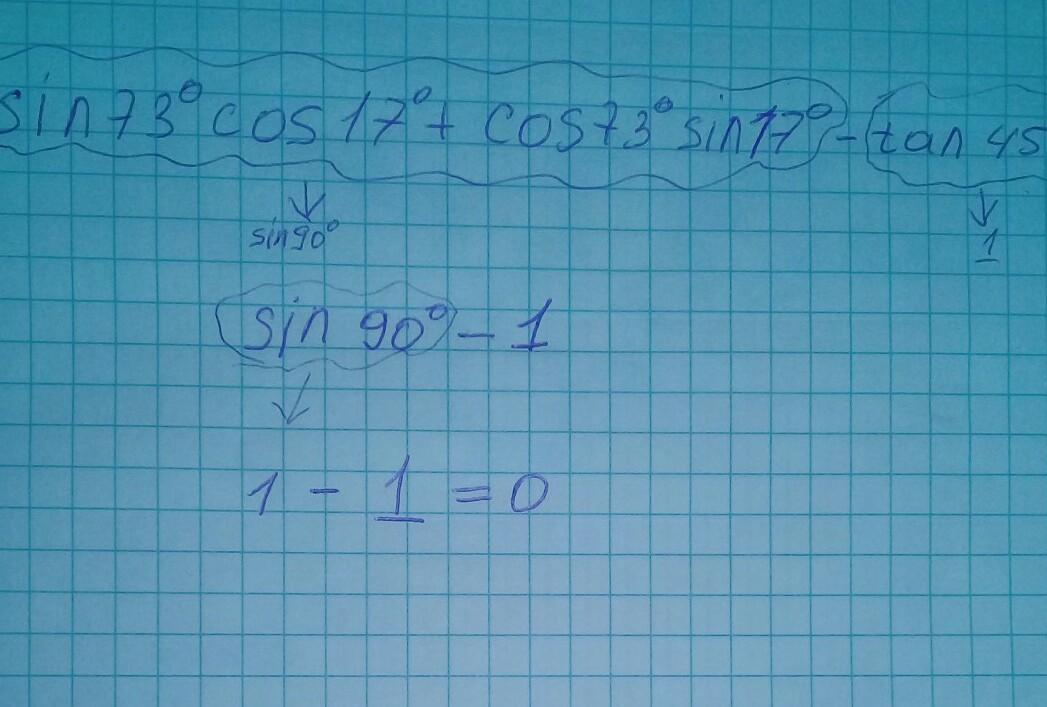 sin73° cos 17° + cos73° sin17° - tan 45
↓ ↓
sin90° 1
sin 90° - 1
↓
1 - 1 = 0